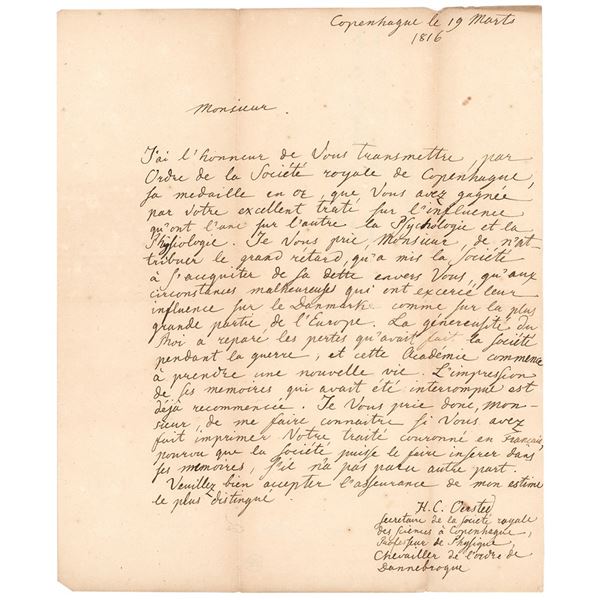 Copenhague le 19 Marts
1816
Monsieur.
J'ai l'honneur de Vous transmettre, par
Ordre de la Société royale de Copenhague,
sa medaille en or, que Vous avez gagnée
par Votre excellent traté sur l'influence
qu'ont l'une sur l'autre la Psychologie et la
Physiologie. Je Vous prie, Monsieur, de n'at-
tribuer le grand rétard, qu'a mis la Société
à s'acquiter de sa dette envers Vous, qu'aux
circonstances malheureuses qui ont excercé leur
influence sur le Danmark comme sur la plus
grande partie de l'Europe. La génereusité du
Roi a réparé les pertes qu'avait fait la société
pendant la guerre, et cette Académie commence
à prendre une nouvelle vie. L'impression
de ses memoires qui avait été interrompue est
déjà recommencée. Je Vous prie donc, Mon-
sieur, de me faire connaitre si Vous avez
fait imprimer Votre traité couronné en Français,
pourvu que la Société puisse le faire inserer dans
ses memoires, s'il n'a pas paru autre part.
Veuillez bien accepter l'assurance de mon estime
le plus distingué.
H. C. Örsted
secretaire de la societé royale
des sciences à Copenhague,
Professeur de Physique,
Chevailler de l'ordre de
Dannebroque